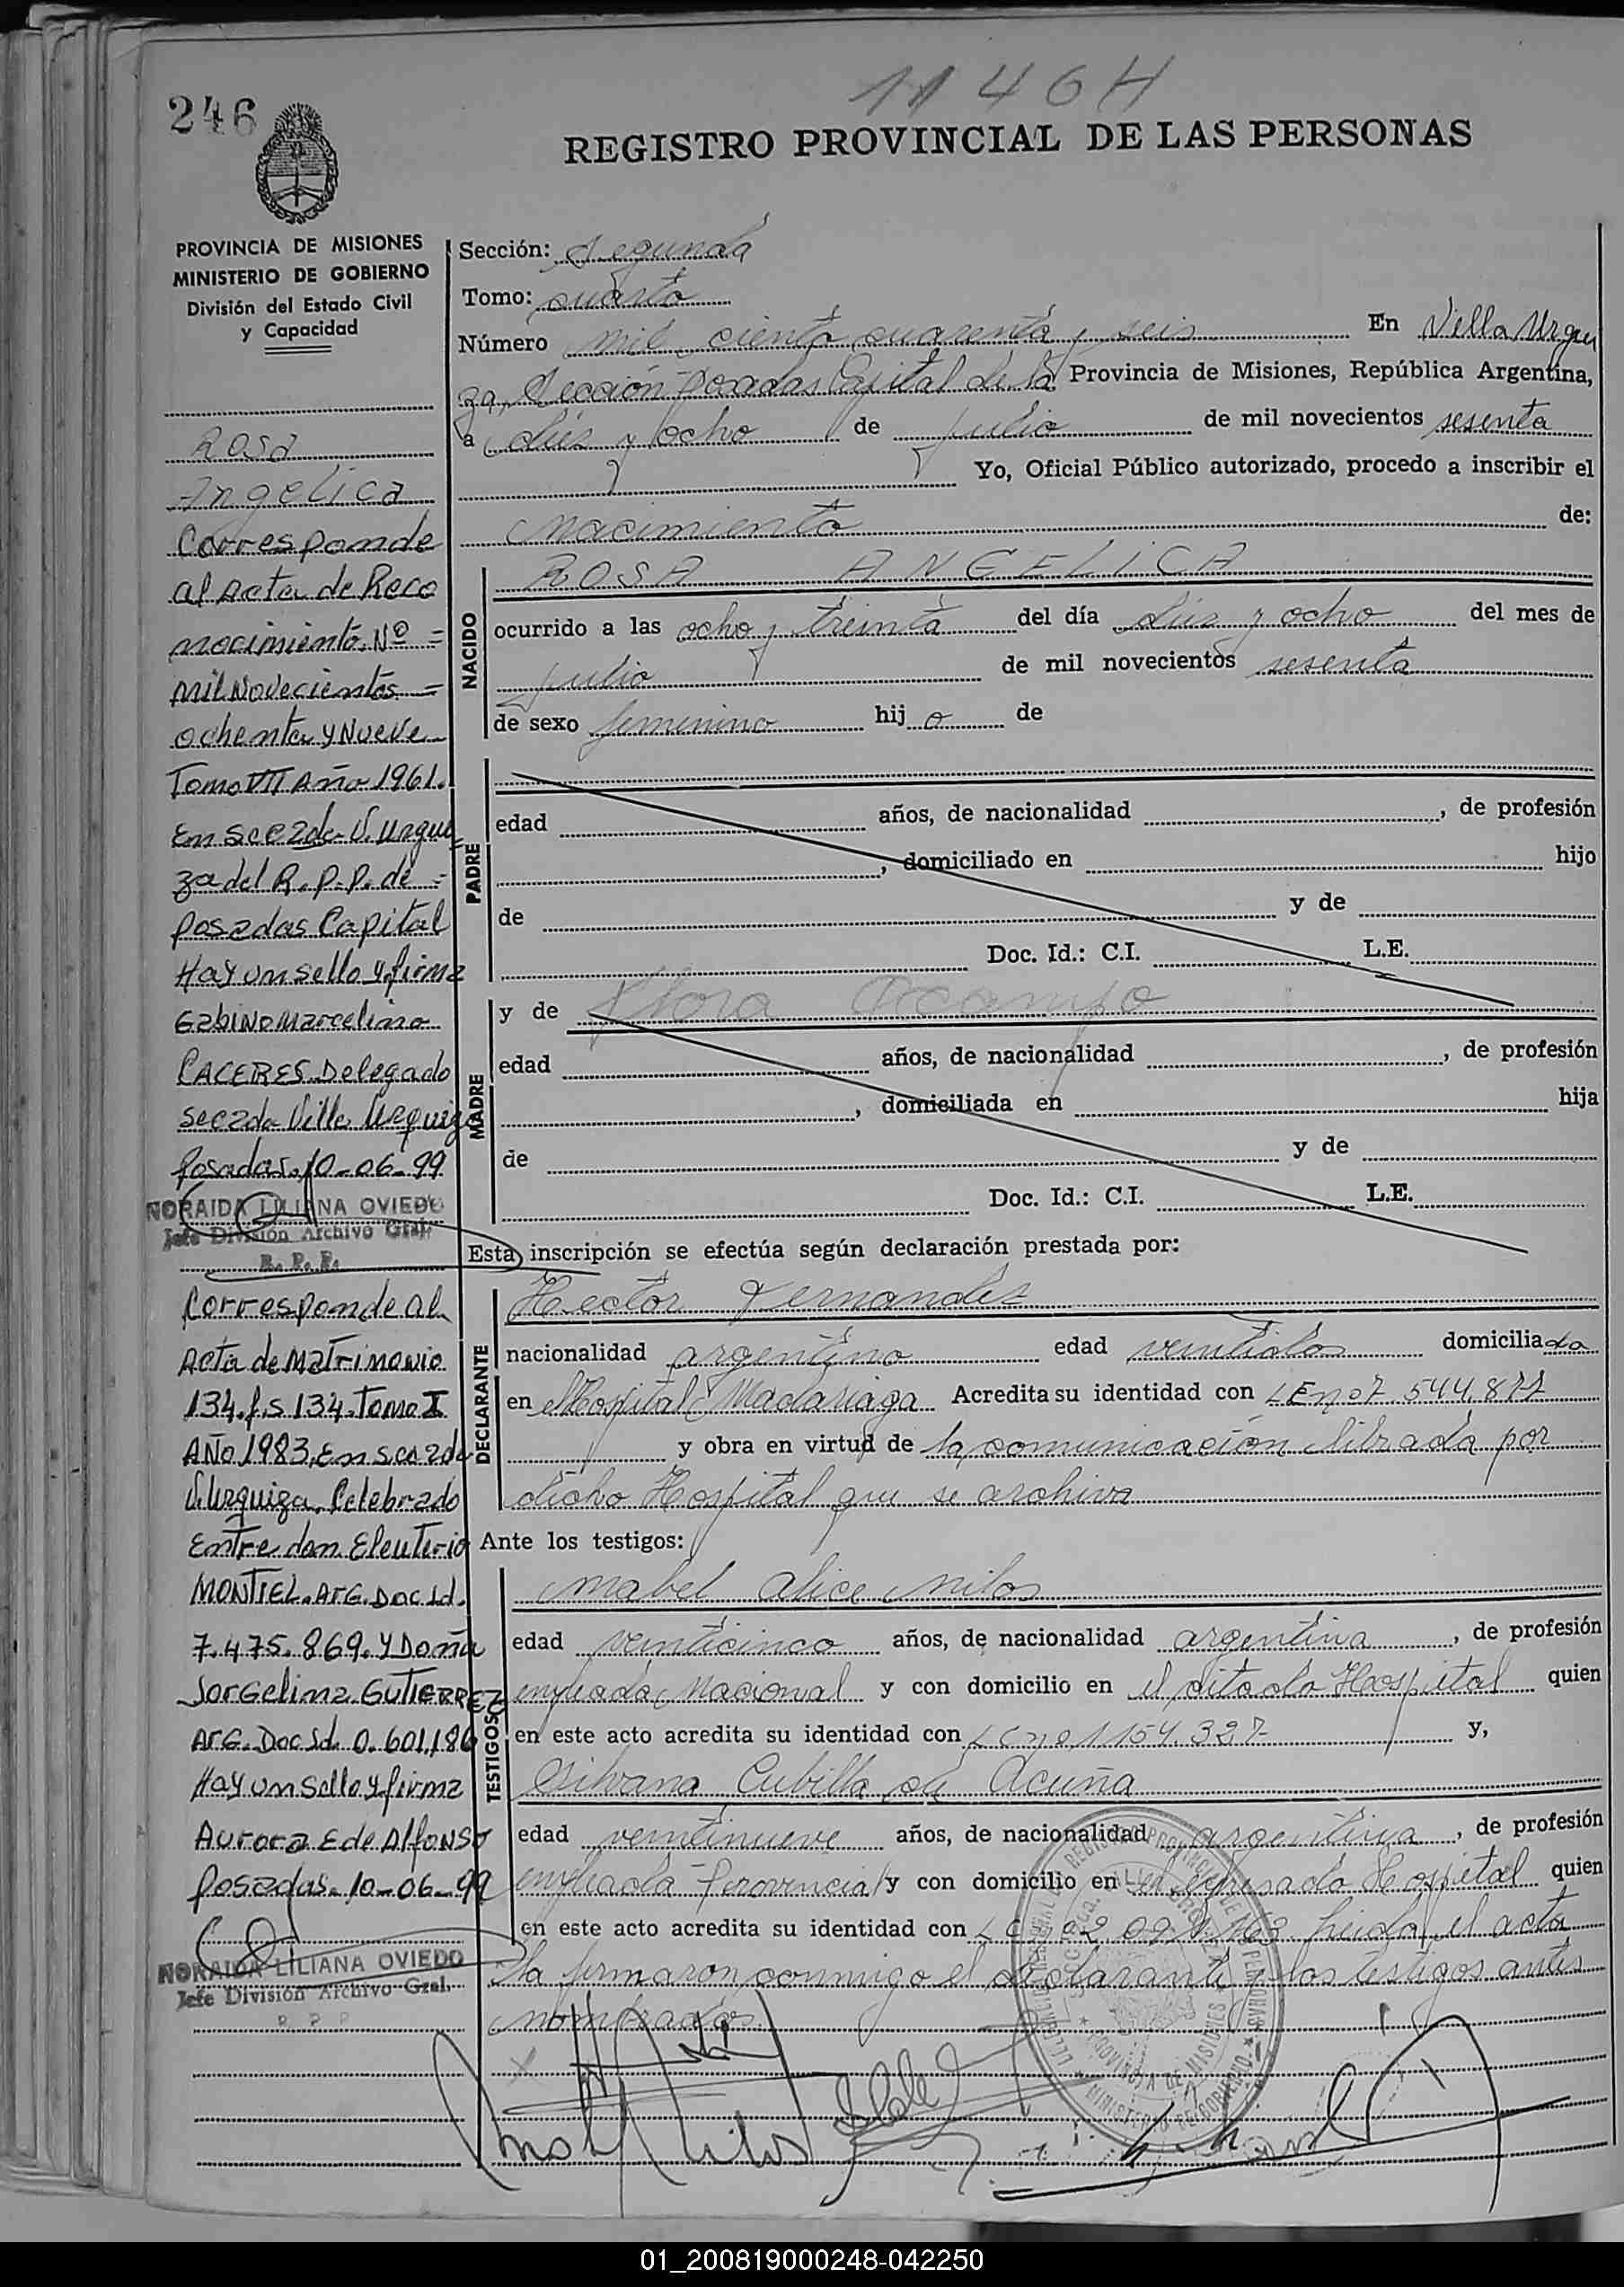 246
1146 H
REGISTRO PROVINCIAL DE LAS PERSONAS
PROVINCIA DE MISIONES
MINISTERIO DE GOBIERNO
División del Estado Civil
y Capacidad
Rosa
Angelica
Corresponde
al Acta de Reco
nocimiento Nº =
Mil Novecientos =
ochenta y Nueve
Tomo VII Año 1961.
En Sec 2da V. Urqui=
za del R. P. P. de =
Posadas Capital
Hay un sello y firma
Gabino Marcelino
CACERES Delegado
sec 2da Villa Urquiza
Posadas, 10-06-99
NORAIDA LILIANA OVIEDO
Jefe División Archivo Gral.
R. P. P.
Corresponde al
Acta de Matrimonio
134. fs 134. Tomo I
Año 1983, En sec 2da
V. Urquiza. Celebrado
Entre don Eleuterio
MONTIEL. Arg. Doc. Id.
7.475.869. y Doña
Jorgelina GUTIERREZ
Arg. Doc Id. 0.601.186
Hay un sello y firma
Aurora E de Alfonso
Posadas. 10-06-99
NORAIDA LILIANA OVIEDO
Jefe División Archivo Gral.
R P P
Sección: Segunda
Tomo: cuarto
Número mil ciento cuarenta y seis En Villa Urqui
za, Sección Posadas Capital de la Provincia de Misiones, República Argentina,
a diés y ocho de julio de mil novecientos sesenta
Yo, Oficial Público autorizado, procedo a inscribir el
nacimiento de:
NACIDO
ROSA ANGELICA
ocurrido a las ocho y treinta del día diés y ocho del mes de
julio de mil novecientos sesenta
de sexo femenino hij a de
PADRE
edad años, de nacionalidad , de profesión
, domiciliado en hijo
de y de
Doc. Id.: C.I. L.E.
MADRE
y de Flora Ocampo
edad años, de nacionalidad , de profesión
, domiciliada en hija
de y de
Doc. Id.: C.I. L.E.
Esta inscripción se efectúa según declaración prestada por:
DECLARANTE
Hector Fernandes
nacionalidad argentino edad veintidos domiciliado
en Hospital Madariaga Acredita su identidad con LE nº 7.544.877
y obra en virtud de la comunicación librada por
dicho Hospital que se archiva
Ante los testigos:
TESTIGOS
Mabel Alice Milos
edad veinticinco años, de nacionalidad argentina , de profesión
empleada Nacional y con domicilio en el citado Hospital quien
en este acto acredita su identidad con LC nº 1154.327 y,
Silvana Cubilla de Acuña
edad veintinueve años, de nacionalidad argentina , de profesión
empleada Provincial y con domicilio en el expresado Hospital quien
en este acto acredita su identidad con leida el acta
la firmaron conmigo el declarante y los testigos antes
nombrados.
01_200819000248-042250